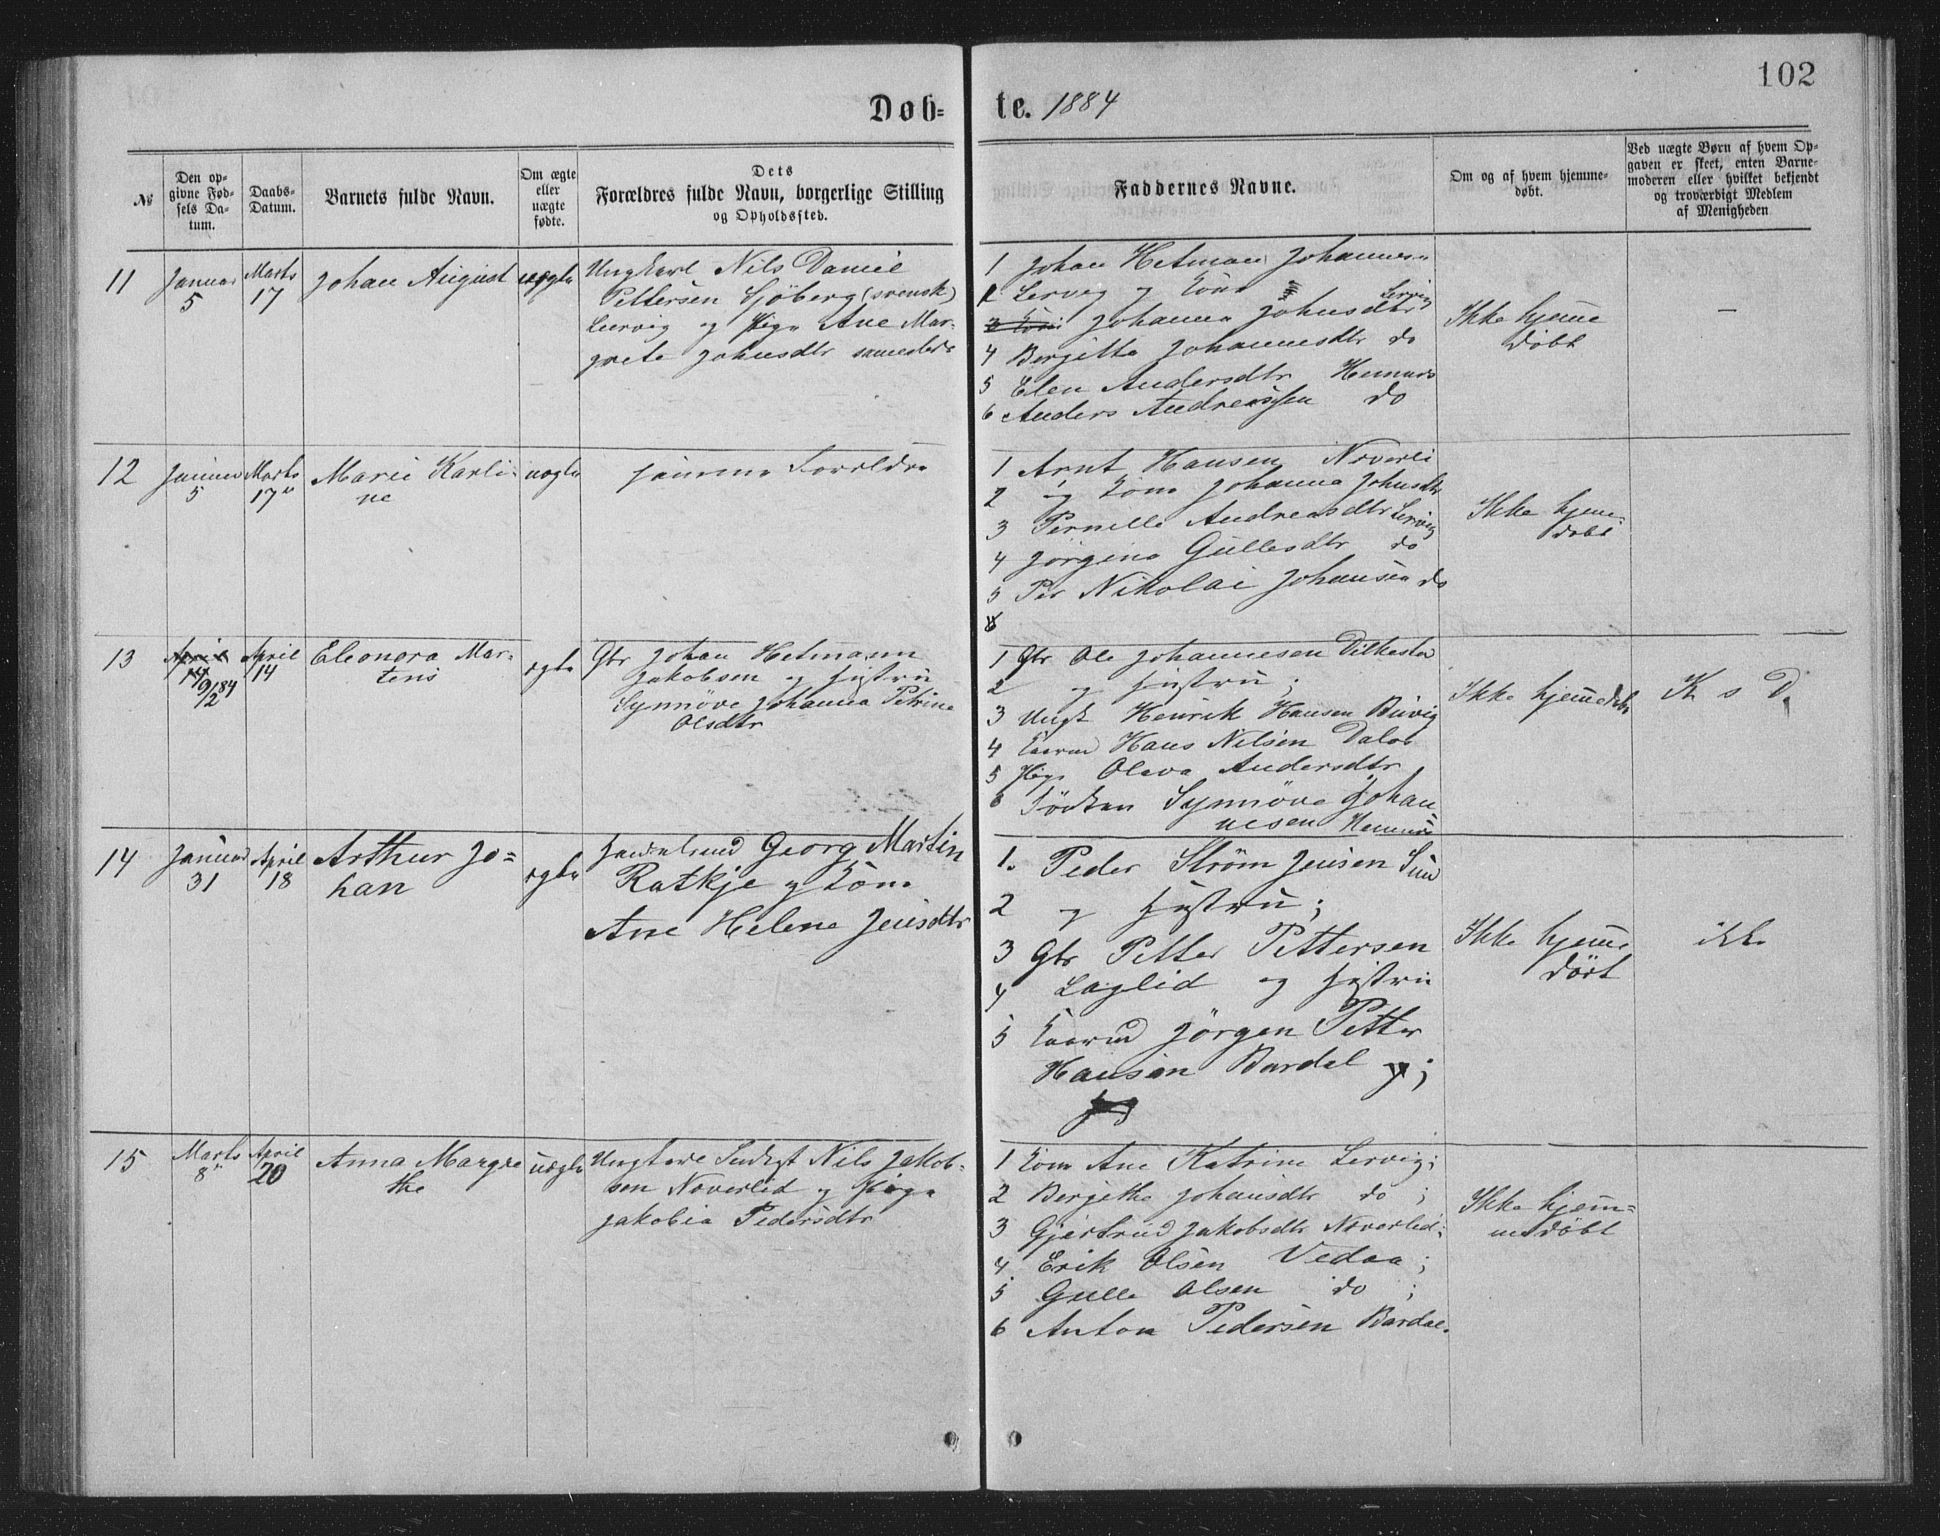 102
Døb= te. 1884
№
Den op-
givne Fød-
sels Da-
tum.
Daabs-
Datum.
Barnets fulde Navn.
Om ægte
eller
uægte
fødte.
Dets
Forældres fulde Navn, borgerlige Stilling
og Opholdssted.
Faddernes Navne.
Om og af hvem hjemme-
døbt.
Ved uægte Børn af hvem Op-
gaven er skeet, enten Barne-
moderen eller hvilket bekjendt
og troværdigt Medlem
af Menigheden
11
Januar
5
Marts
17
Johan August
uægte
Ungkarl Nils Daniel
Pettersen Sjöberg (svensk)
Lervig og Pige Ane Mar-
grete Johnsdtr sammesteds
1 Johan Hetman Johannes"
2 Lervig og Kone
Johanna Johnsdtr Lervig
4 Bergitta Johannesdtr do
5 Elen Andersdtr
6 Anders Andreassen do
Ikke hjemme
døbt
-
12
Januar
5
Marts
17"
Marie Karli-
ne
uægte
samme Forældre
1 Arnt Hansen Noverli
2 og Kone Johanna Johnsdtr
3 Pernille Andreasdtr Lervig
4 Jörgina Gullesdtr do
5 Per Nikolai Johansen do
6
Ikke hjem-
døbt
13
April
14
9/2 84
April
14
Eleonora Mar-
tens
ægte
Gbr Johan Hetmann
Jakobsen og Hustru
Synnöve Johanna Petrine
Olsdtr
1 Gbr Ole Johannesen Dilkesta
2 og Hustru;
3 Ungk Henrik Hansen Buvig
4 Hans Nilsen
5 Pige Oleva Andersdtr
6 Fröken Synnöve Johan
nesen
Ikke hjemedøbt
K s D.
14
Januar
31
April
18
Arthur Jo=
han
ægte
Handelsmd Georg Martin
Ratkje og Kone
Ane Helene Jensdtr
1. Peder Ström Jensen Sund
2 og Hustru;
3 Gbr Petter Pettersen
4 Laglid og Hustru
5 Jörgen Petter
Hansen Bardal
Ikke hjeme
døbt
ikke
15
Marts
8"
April
20
Anna Margre
the
uægte
Ungkarl Nils Jakob-
sen Noverlid og Pige
Jakobia Pedersdtr
1 Kone Ane Katrine Lervig;
2 Bergithe Johansdtr do;
3 Gjertrud Jakobsdtr Noverlid;
4 Erik Olsen Vedaa;
5 Gulle Olsen do;
6 Anton Pedersen Bardal.
Ikke hjem=
medøbt